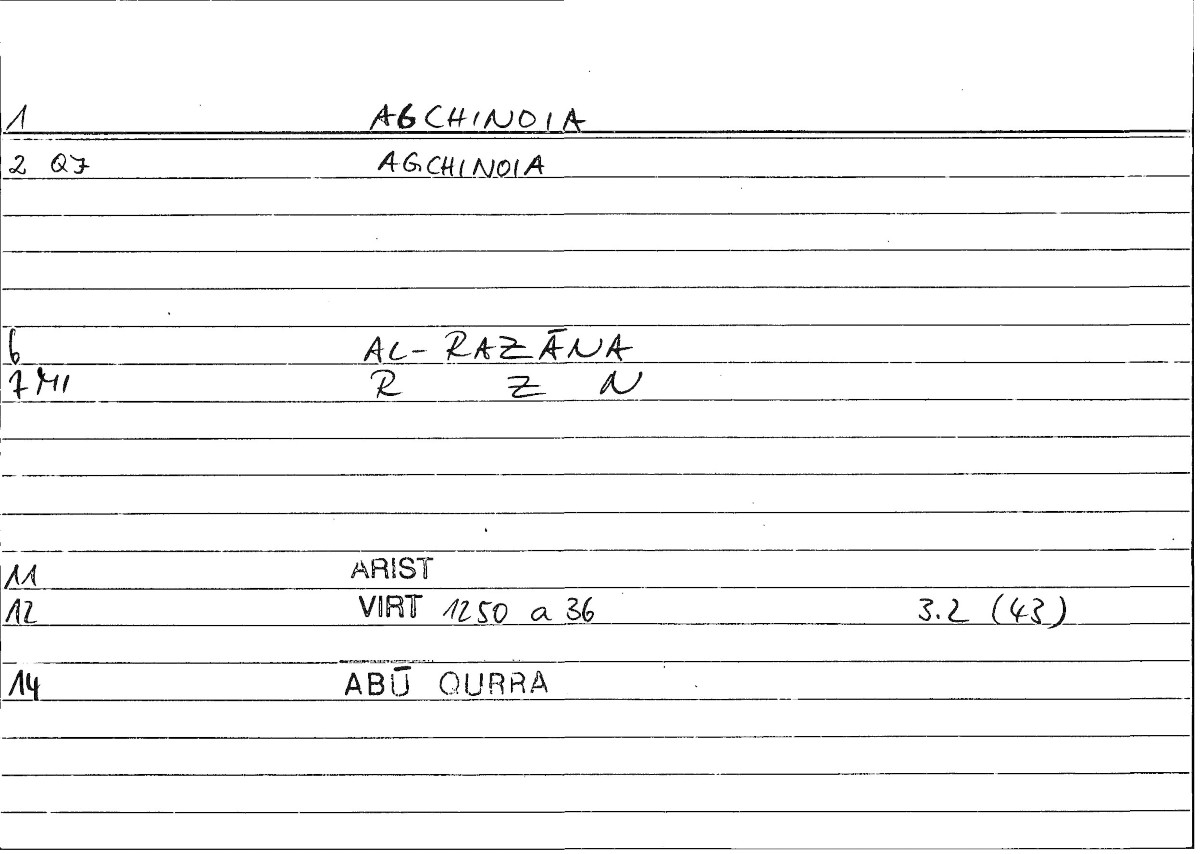 1 AGCHINOIA
2 QJ AGCHINOIA
6 AL-RAZĀNA
7 MI R Z N
11 ARIST
12 VIRT 1250 a 36 3.2 (43)
14 ABŪ QURRA